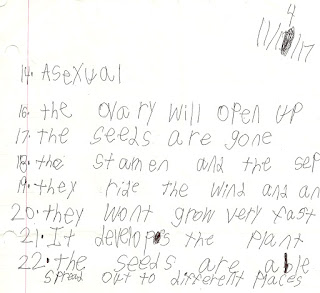 4
11/1/17
14. Asexual
16. the ovary will open up
17. the seeds are gone
18. the stamen and the sep
19. they ride the wind and an
20. they wont grow very fast
21. It develops the plant
22. the seeds are able
spread out to different places